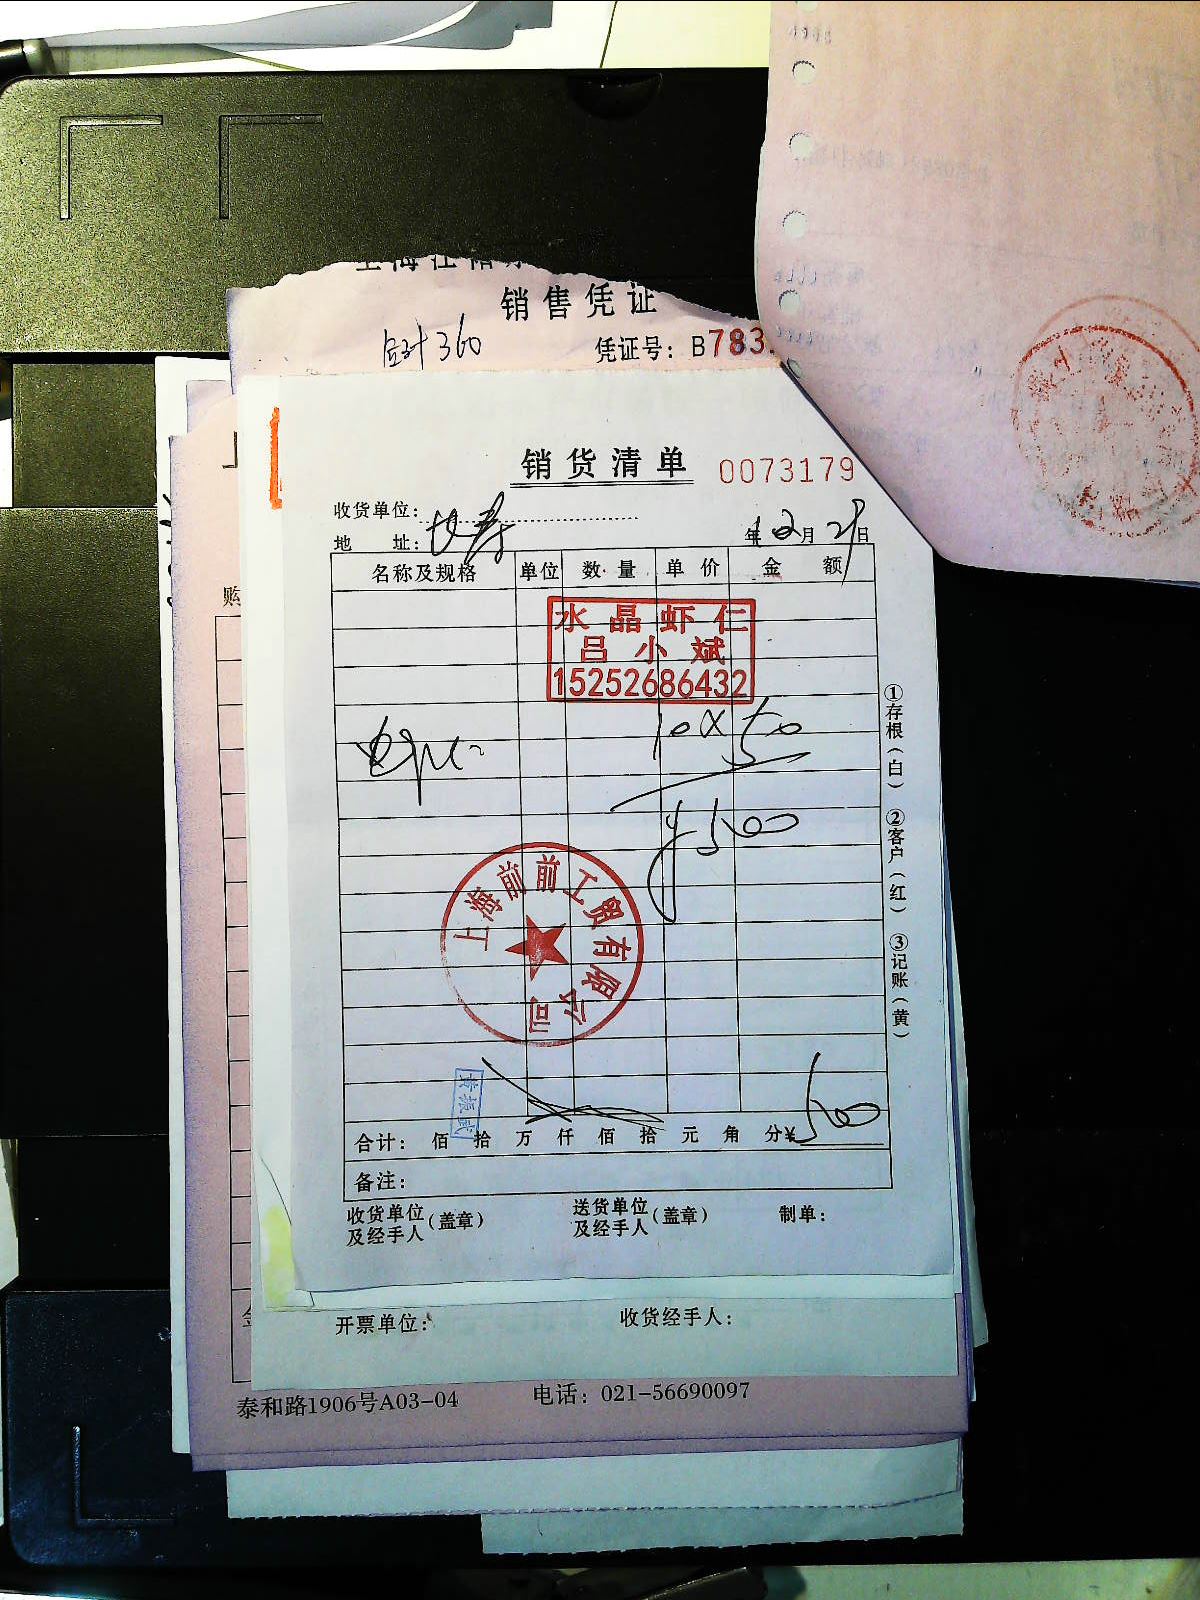 销售凭证
合计 360
凭证号：B783
销货清单 0073179
收货单位：
地 址：长寿
年12月21日
名称及规格 单位 数量 单价 金额
水晶虾仁
吕小斌
15252686432
10×50
¥500
上海前前工贸有限公司
黄振武
合计： 佰 拾 万 仟 佰 拾 元 角 分¥500
备注：
收货单位及经手人（盖章） 送货单位及经手人（盖章） 制单：
①存根（白） ②客户（红） ③记账（黄）
开票单位： 收货经手人：
泰和路1906号A03-04 电话：021-56690097